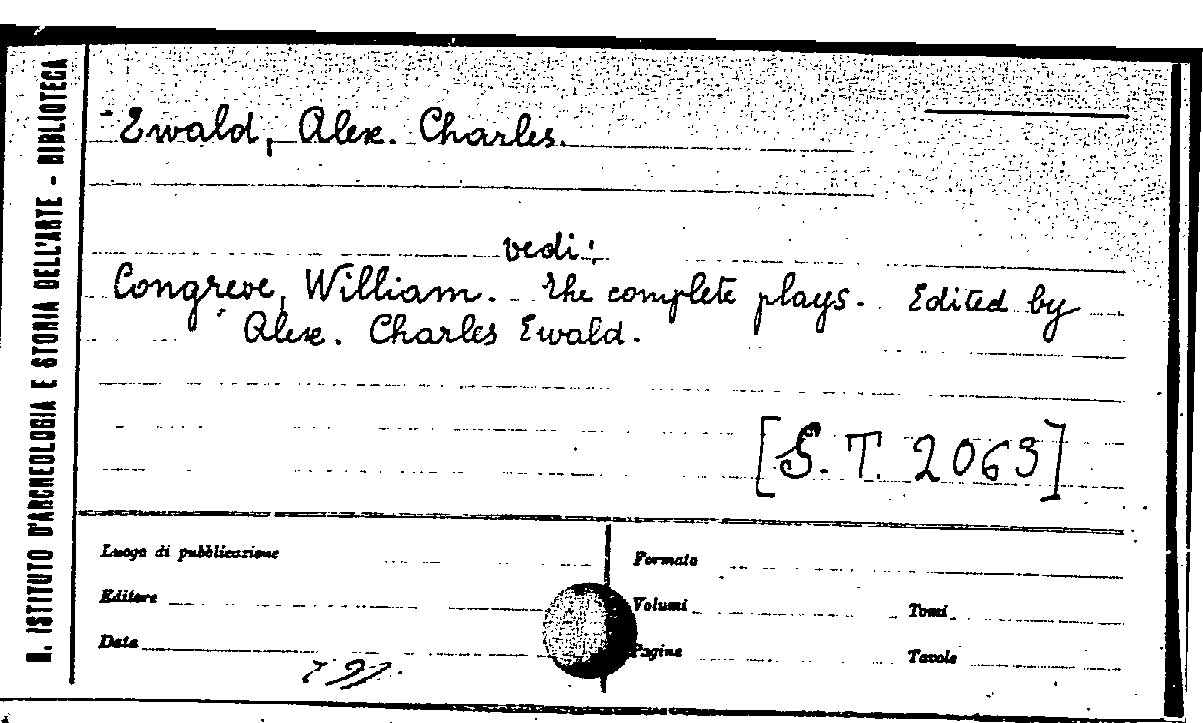 R. ISTITUTO D'ARCHEOLOGIA E STORIA DELL'ARTE - BIBLIOTECA
Ewald, Alex. Charles.
vedi:
Congreve, William. The complete plays. Edited by
Alex. Charles Ewald.
[S. T. 2063]
Luogo di pubblicazione
Formato
Editore
Volumi
Tomi
Data
Pagine
Tavole